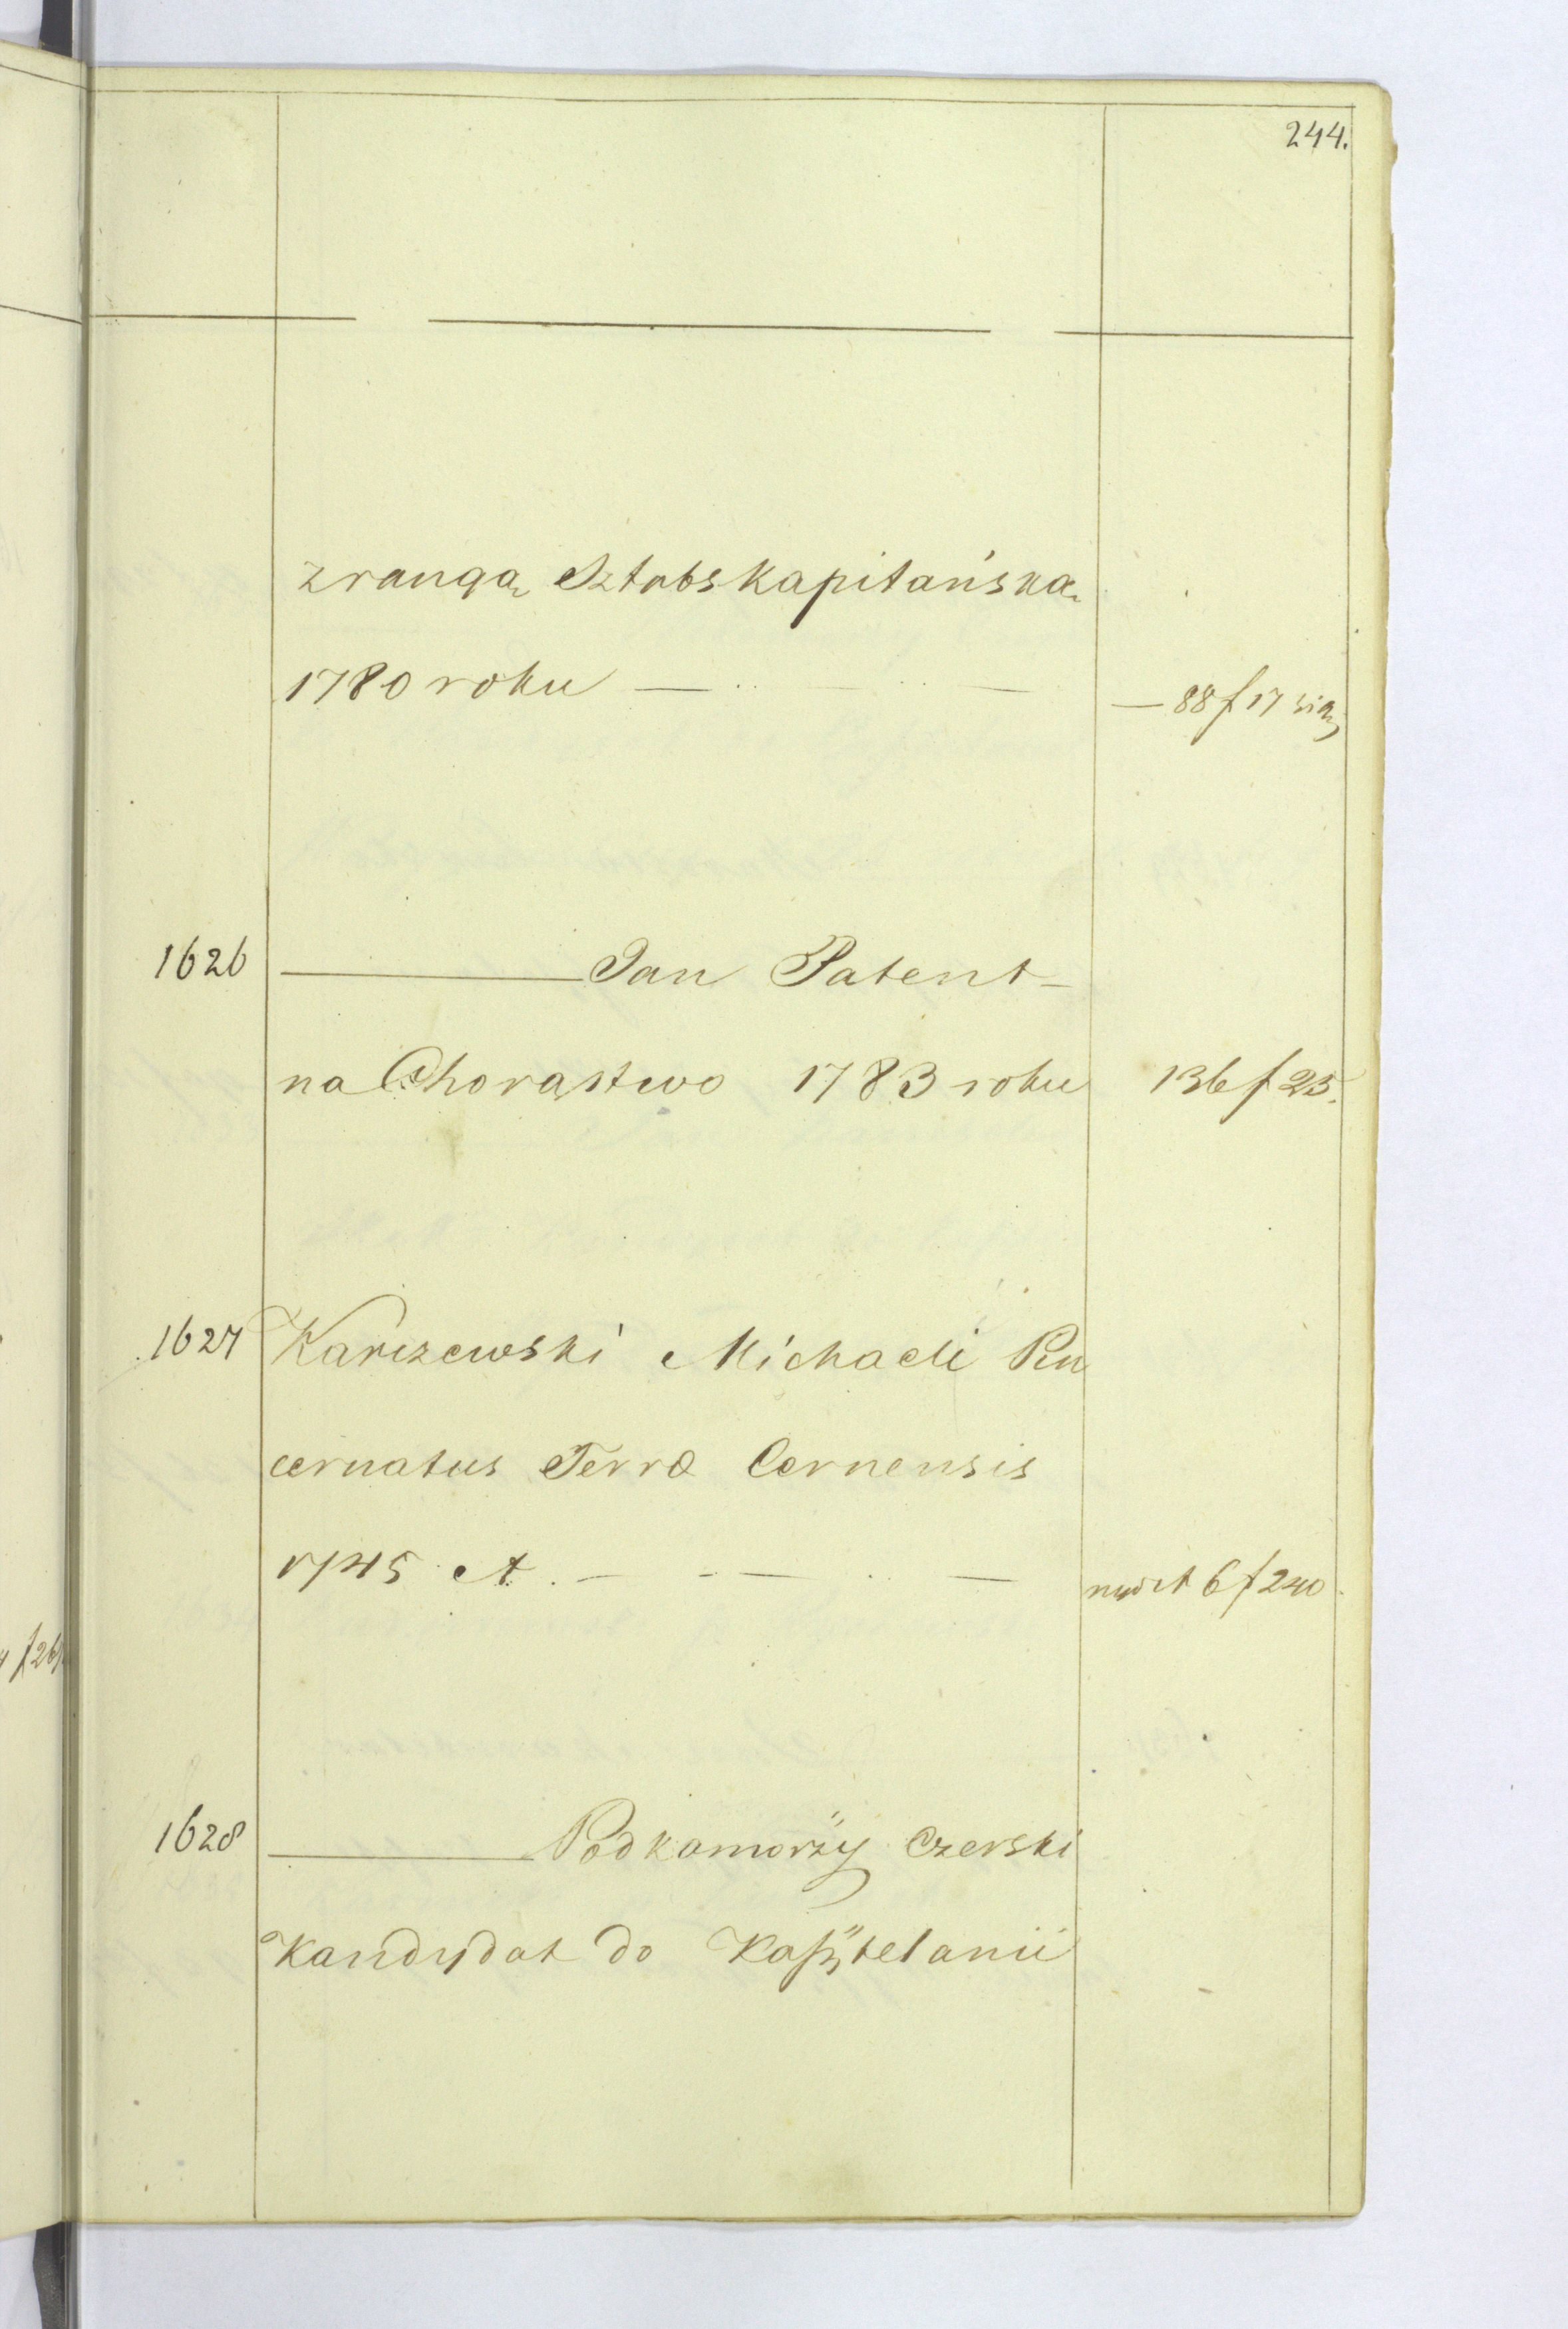 244.
z rangą Sztabskapitańską
1780 roku — .. — .. — — 88 f 17
1626 ——— Jan Patent
na Chorąstwo 1783 roku 136 f 25.
1627 Karczewski Michaeli Pin
cernatus Terræ Cernensis
1745 A. — - — .. — 6 f 240
1628 ——— Podkomorzy Czerski
Kandydat do Kasztelanii
f 26